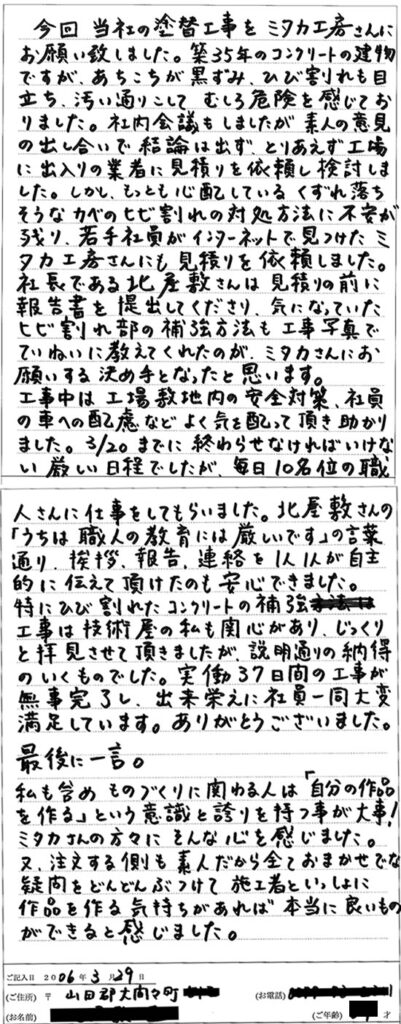 今回 当社の塗替工事を ミタカ工房さんに
お願い致しました。築35年のコンクリートの建物
ですが、あちこちが黒ずみ、ひび割れも目
立ち、汚い通りこして むしろ危険を感じてお
りました。社内会議もしましたが 素人の意見
の出し合いで 結論は出ず、とりあえず工場
に出入りの業者に見積りを依頼し検討しま
した。しかし、もっとも心配している くずれ落ち
そうなカベのヒビ割れの対処方法に不安が
残り、若手社員がインターネットで見つけたミ
タカ工房さんにも見積りを依頼しました。
社長である北屋敷さんは見積りの前に
報告書を提出してくださり、気になっていた
ヒビ割れ部の補強方法も工事写真で
ていねいに教えてくれたのが、ミタカさんにお
願いする決め手となったと思います。
工事中は工場敷地内の安全対策、社員
の車への配慮など よく気を配って頂き助かり
ました。3/20までに終わらせなければいけな
い厳しい日程でしたが、毎日10名位の職
人さんに仕事をしてもらいました。北屋敷さんの
「うちは職人の教育には厳しいです」の言葉
通り、挨拶、報告、連絡を1人1人が自主
的に伝えて頂けたのも安心できました。
特にひび割れたコンクリートの補強
工事は技術屋の私も関心があり、じっくり
と拝見させて頂きましたが、説明通りの納得
のいくものでした。実働37日間の工事が
無事完了し、出来栄えに社員一同大変
満足しています。ありがとうございました。
最後に一言。
私も含め ものづくりに関わる人は「自分の作品
を作る」という意識と誇りを持つ事が大事!
ミタカさんの方々に そんな心を感じました。
又、注文する側も素人だから全ておまかせでな
疑問をどんどんぶつけて 施工者といっしょに
作品を作る気持ちがあれば 本当に良いもの
ができると感じました。
ご記入日 2006年3月29日
(ご住所) 〒 山田郡大間々町 (お電話)
(お名前) (ご年齢) 才